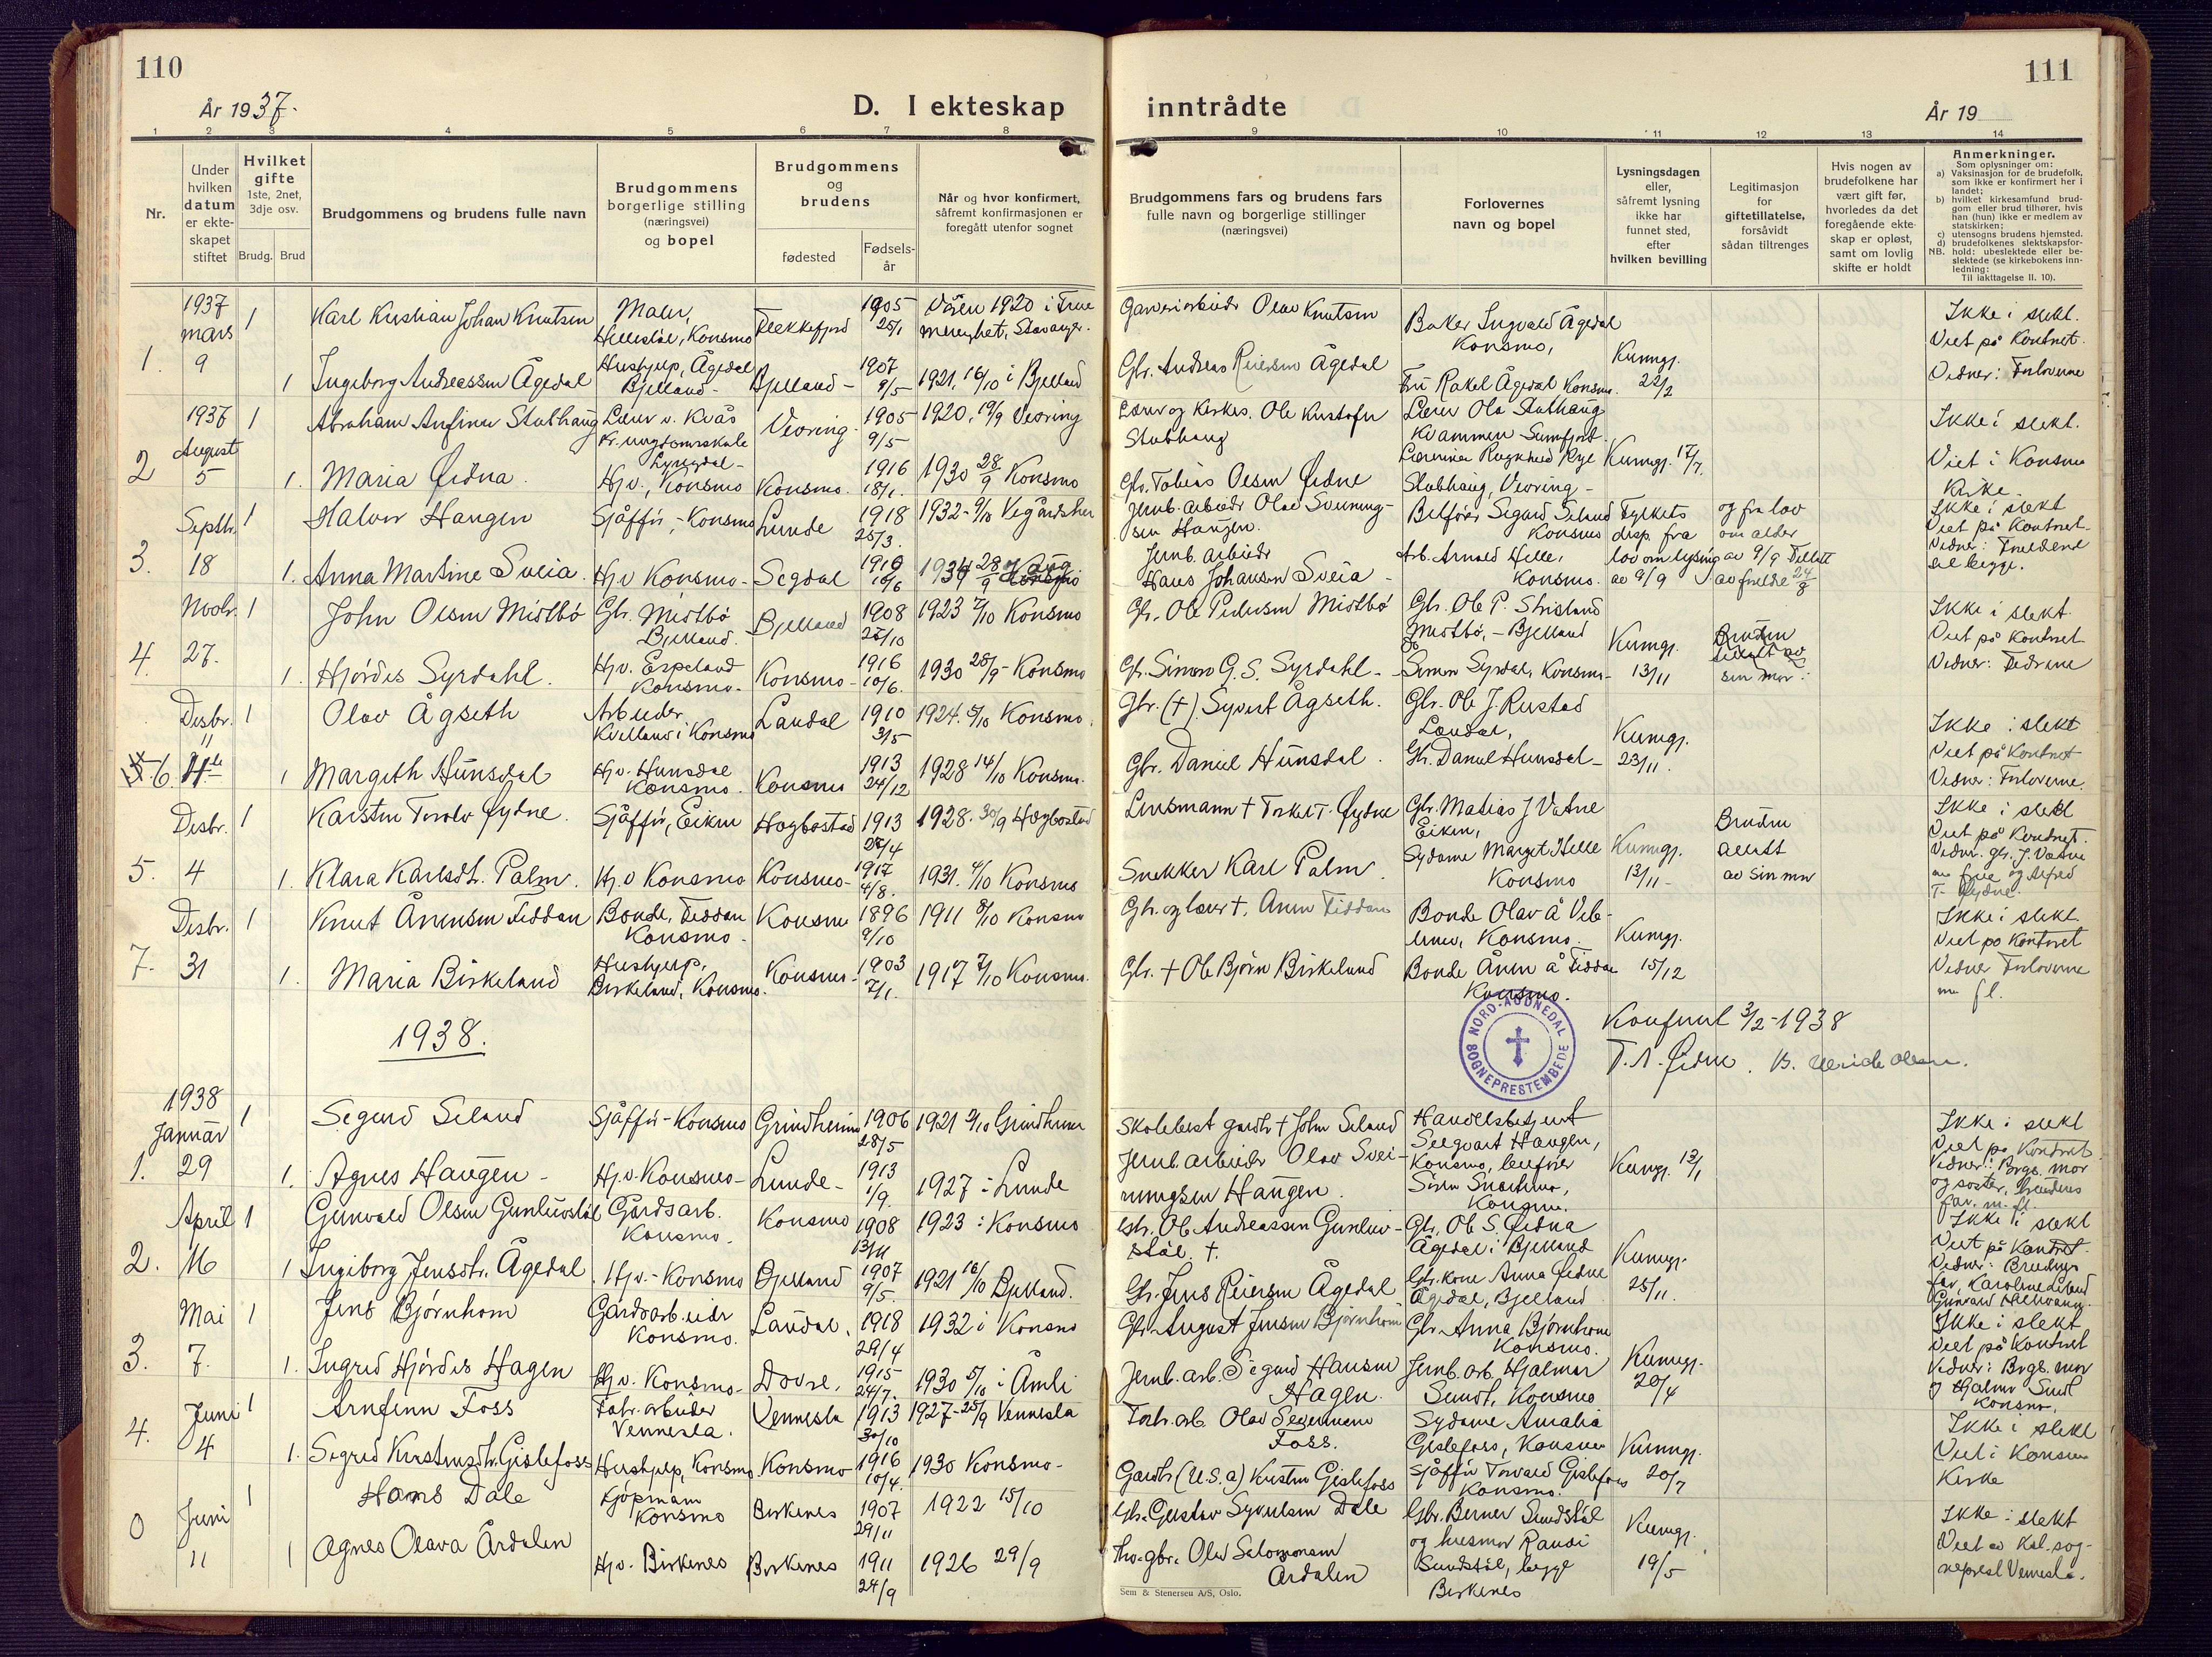 110
År 1937.
D. I ekteskap
1 2 3 4 5 6 7 8
Nr.
Under hvilken datum er ekte-skapet stiftet
Hvilket gifte
1ste, 2net, 3dje osv.
Brudg. Brud
Brudgommens og brudens fulle navn
Brudgommens borgerlige stilling (næringsvei) og bopel
Brudgommens og brudens
fødested
Fødsels-år
Når og hvor konfirmert, såfremt konfirmasjonen er foregått utenfor sognet
1937
mars
9
1.
1
Karl Kristian Johan Knutsen
Maler,
Hellestøl, Konsmo
Flekkefjord
1905
25/1
Våren 1920 i Frue
menighet, Stavanger.
1
Ingeborg Andreassen Ågedal
Hushjelp, Ågedal
Bjelland -
Bjelland -
1907
9/5
1921, 16/10 i Bjelland
1937
August
5
2
1
Abraham Anfinn Stubhaug
Lærer v. Kvås
kr. ungdomsskule
Lyngdal -
Vevring -
1905
9/5
1920, 19/9 Vevring
1.
Maria Øidna.
Hjv., Konsmo
Konsmo.
1916
18/1.
1930 28/9 Konsmo
Septbr.
18
3.
1
Halvor Haugen
Sjåffør, - Konsmo
Lunde
1918
25/3.
1932 - 9/10 Vegårdshei
1.
Anna Martine Sveia.
Hjv Konsmo -
Segdal
1916
10/6
Novbr.
27.
4.
1
John Olsen Midtbø
Gbr. Midtbø
Bjelland.
Bjelland
1908
25/10
1923 7/10 Konsmo
1.
Hjørdis Syrdahl.
Hjv. Espeland
Konsmo.
Konsmo -
1916
10/6.
1930 28/9 - Konsmo
Desbr.
11
6
1
Olav Ågseth
Arbeider
Kvelland i Konsmo
Laudal
1910
3/5
1924. 5/10 Konsmo.
1
Margith Hunsdal
Hjv. Hunsdal
Konsmo.
Konsmo
1913
24/12
1928 14/10 Konsmo.
Desbr.
4
5.
1
Karsten Torolv Øydne.
Sjåffør, Eiken
Hægbostad
1913
28/4
1928. 30/9 Hægbostad
1.
Klara Karlsdt. Palm.
Hjv Konsmo
Konsmo -
1917
4/8.
1931. 4/10 Konsmo
Desbr.
31
7.
1
Knut Ånensen Fiddan
Bonde, Fiddan
Konsmo -
Konsmo
1896
9/10
1911 8/10 Konsmo
1.
Maria Birkeland
Hushjelp,
Birkeland, Konsmo.
Konsmo -
1903
7/1.
1917 7/10 Konsmo.
1938.
1938
Januar
29
1.
1
Segurd Seland
Sjåffør - Konsmo
Grindheim
1906
28/5
1921 2/10 Grindheim
1.
Agnes Haugen -
Hjv. Konsmo -
Lunde -
1913
1/9.
1927 i Lunde
April
16
2.
1
Gunvald Olsen Gunluvstøl
Gårdsarb.
Konsmo.
Konsmo
1908
13/11
1923 i Konsmo
1
Ingeborg Jensdtr. Ågedal
Hjv. - Konsmo
Bjelland
1907
9/5.
1921 16/10 Bjelland.
Mai
7.
3.
1
Jens Bjørnhom
Gårdsarbeider
Konsmo.
Laudal.
1918
29/4
1932 i Konsmo
1.
Ingrid Hjørdis Hagen
Hjv. Konsmo -
Dovre.
1915
24/7.
1930 5/10 i Åmli
Juni
4
4.
1
Arnfinn Foss
Fabr. arbeider
Vennesla.
Vennesla
1913
30/10
1927 - 25/9 Vennesla
1.
Segred Kristensdtr. Gislefoss
Hushjelp, Konsmo
Konsmo
1916
10/4.
1930 Konsmo -
Juni
11
0
1
Hans Dale
Kjøpmann
Konsmo
Birkenes
1907
29/11
1922 15/10
1
Agnes Olava Årdalen
Hjv. Birkenes
Birkenes
1911
24/9
1926 29/9
111
inntrådte
År 19
9 10 11 12 13 14
Brudgommens fars og brudens fars fulle navn og borgerlige stillinger (næringsvei)
Forlovernes navn og bopel
Lysningsdagen eller, såfremt lysning ikke har funnet sted, efter hvilken bevilling
Legitimasjon for giftetillatelse, forsåvidt sådan tiltrenges
Hvis nogen av brudefolkene har vært gift før, hvorledes da det foregående ekte-skap er opløst, samt om lovlig skifte er holdt
Anmerkninger.
Som oplysninger om:
a) Vaksinasjon for de brudefolk, som ikke er konfirmert her i landet;
b) hvilket kirkesamfund brud-gom eller brud tilhører, hvis han (hun) ikke er medlem av statskirken;
c) utensogns brudens hjemsted.
d) brudefolkenes slektskapsfor-hold: ubeslektede eller be-slektede (se kirkebokens inn-ledning:
NB. Til iakttagelse II. 10).
Garveriarbeider Olav Knutsen
Baker Ingvald Ågedal
Konsmo,
Kunngj.
22/2
Ikke i slekt.
Viet på Kontoret.
Vidner: Forloverne
Gbr. Andreas Reiersen Ågedal
Fru Rakel Ågedal Konsmo.
Lærer og Kirkes. Ole Kristofer
Stubhaug
Lærer Ola Stubhaug
Kvammen Sunnfjord.
Kunngj. 17/7.
Ikke i slekt.
Viet i Konsmo
Kirke.
Gbr. Tobias Olsen Øidne
Stubhaug, Vevring -
Jernb. arbeider Olav Sveinung-
sen Haugen.
Bilfører Segurd Seland
Konsmo
Fylkets
disp. fra
lov om lysing
av 9/9
og fra lov
om alder
av 9/9
Ikke i slekt
Viet på Kontoret -
Jernb. arbeider
Hans Johansen Sveia -
Arb. Arnold Helle,
Konsmo.
Gbr. Ole Pedersen Midtbø
Gbr. Ole P. Strisland
Midtbø, - Bjelland
Kunngj.
13/11
Bruden
sin mor
Ikke i slekt
Viet på kontoret
Vidner: Fedrene
Gbr. Simon G. S. Syrdahl -
Simon Syrdal, Konsmo -
Gbr. (+) Syvert Ågseth.
Gbr. Ole J. Rustad
Laudal,
Kunngj.
23/11.
Ikke i slekt
Viet på Kontoret
Vidner: Forloverne.
Gbr. Daniel Hunsdal.
Gbr. Daniel Hunsdal -
Lensmann + Torkel T. Øydne
Gbr. Matias J Vatne
Eiken,
Kunngj.
13/11 -
Bruden
av sin mor
Ikke i slekt
Viet på Kontoret.
Vidner. gbr. J. Vatne
m frue og Alfred
T. Øydne.
Snekker Karl Palm.
Sydame Marget Helle
Konsmo
Gbr. og lærer +. Anen Fiddan
Bonde Olav Å Vele-
Konsmo.
Kunngj.
15/12
Ikke i slekt.
Viet på Kontoret
Vidner Forloverne
m. fl.
Gbr. + Ole Bjørn Birkeland
Bonde Ånen Å Fiddan
Konsmo.
NORD-AUDNEDAL SOGNEPRESTEMBEDE
Konferert 3/2 - 1938
T. A. Øidne.
Skolebest. gardbr + John Seland
Handelsbetjent
Haugen,
Konsmo,
Kunngj. 13/1
Ikke i slekt
Viet på Kontoret.
Vidner: Brgs. mor
og søster, brudens
far. m. fl.
Jernb. arbeider Olav Svei-
nungsen Haugen.
Konsmo.
Gbr. Ole Andreassen Gunluv-
støl. +.
Gbr. Ole S. Øidna
Ågedal i Bjelland
Kunngj.
25/11.
Ikke i slekt
Viet på Kontoret.
Vidner: Brudens
far, Karoline Seland
Gbr. Jens Reiersen Ågedal
Gbr. kone Anna Øidne
Ågedal, Bjelland
Gbr. August Jensen Bjørnhom
Gbr. Anna Bjørnhom
Konsmo.
Kunngj.
20/4
Ikke i slekt
Viet på Kontoret
Vidner: Brgs. mor
og Hjalmar Sundt
Konsmo.
Jernb. arb. Sigurd Hansen
Hagen.
Jernb. arb. Hjalmar
Sundt, Konsmo
Fabr. arb. Olav Segermann
Foss.
Sydame Amalia
Gislefoss, Konsmo
Kunngj.
Ikke i slekt
Viet i Konsmo
Kirke
Gardbr. (U.S.A) Kristen Gislefoss
Sjåffør Torvald Gislefoss
Konsmo.
Gbr. Gustav Syvertsen Dale
Gbr. Berner Sundstøl
og husmor Randi
Sundstøl, begge
Birkenes
Kunngj.
19/5
Ikke i slekt
Viet av Kal. sog-
neprest Vennesla.
gbr. Olav Salomonsen
Årdalen
Sem & Stenersen A/S, Oslo.